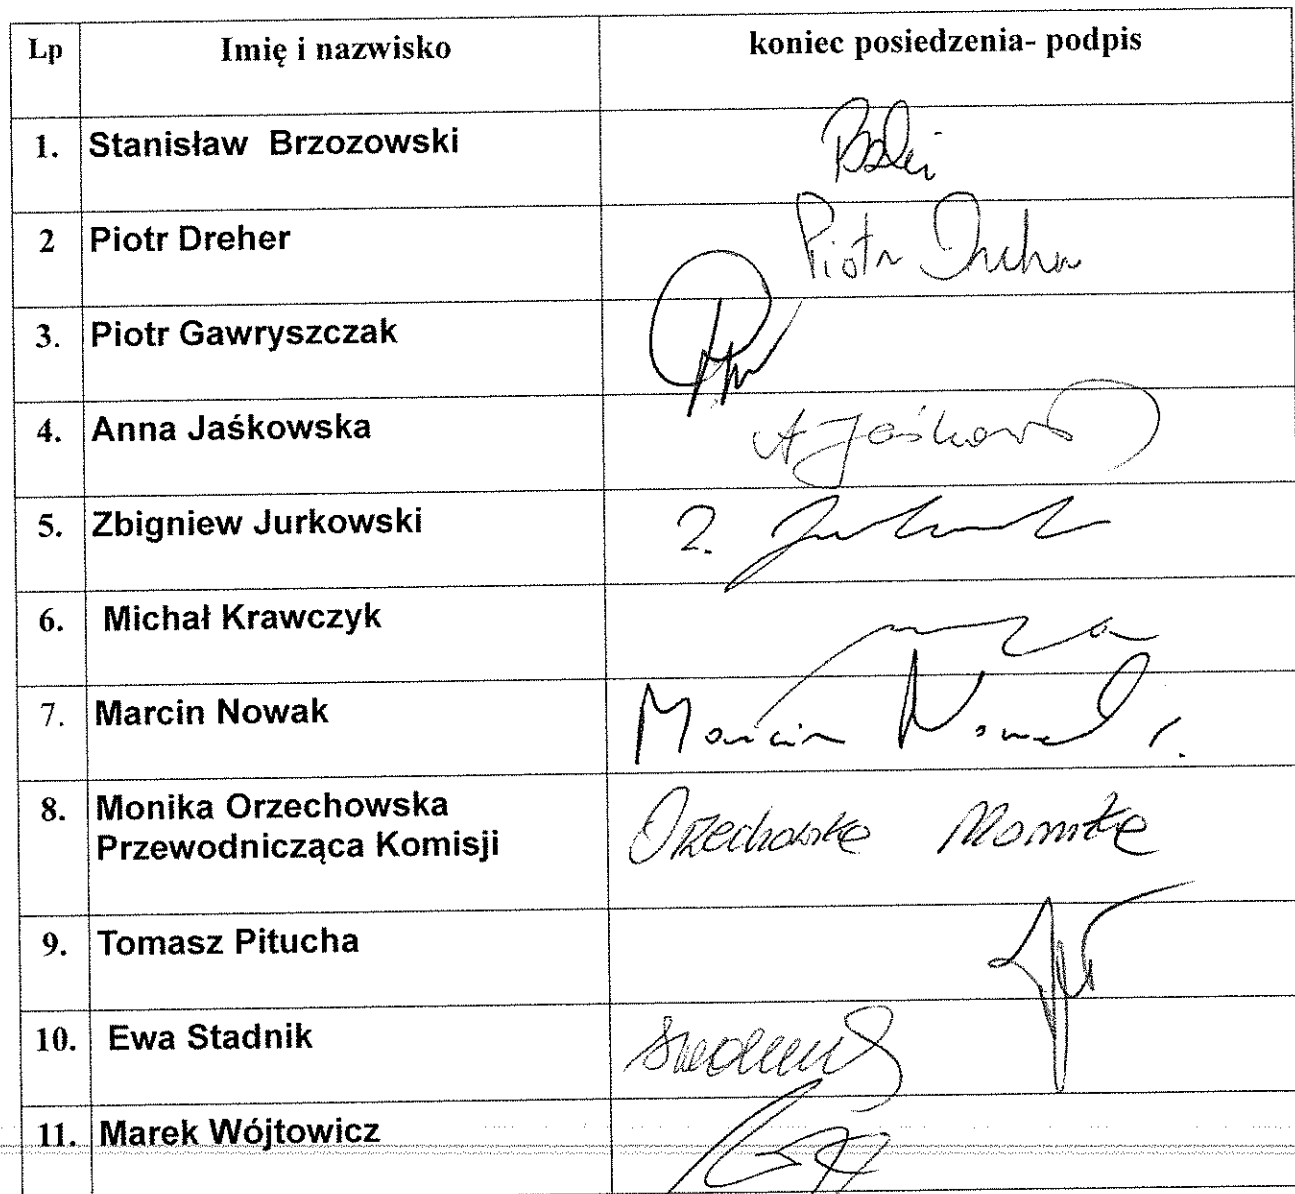 Lp Imię i nazwisko koniec posiedzenia- podpis
1. Stanisław Brzozowski
2 Piotr Dreher Piotr Dreher
3. Piotr Gawryszczak
4. Anna Jaśkowska A Jaśkowska
5. Zbigniew Jurkowski Z.
6. Michał Krawczyk
7. Marcin Nowak Marcin Nowak
8. Monika Orzechowska Orzechowska Monika
Przewodnicząca Komisji
9. Tomasz Pitucha
10. Ewa Stadnik
11. Marek Wójtowicz